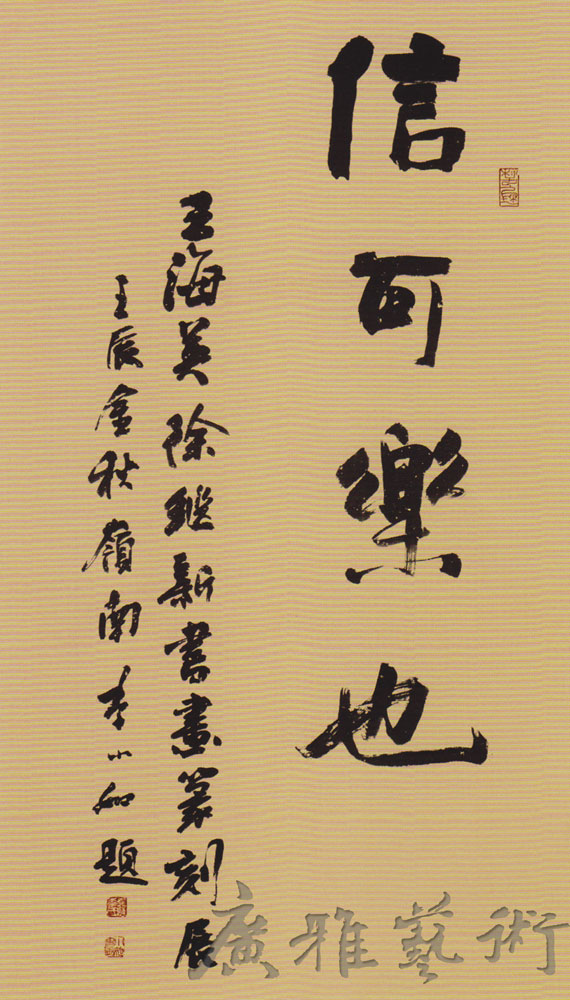 信可樂也
王海英陈继新書畫篆刻展
壬辰金秋嶺南李小如題
廣雅藝術